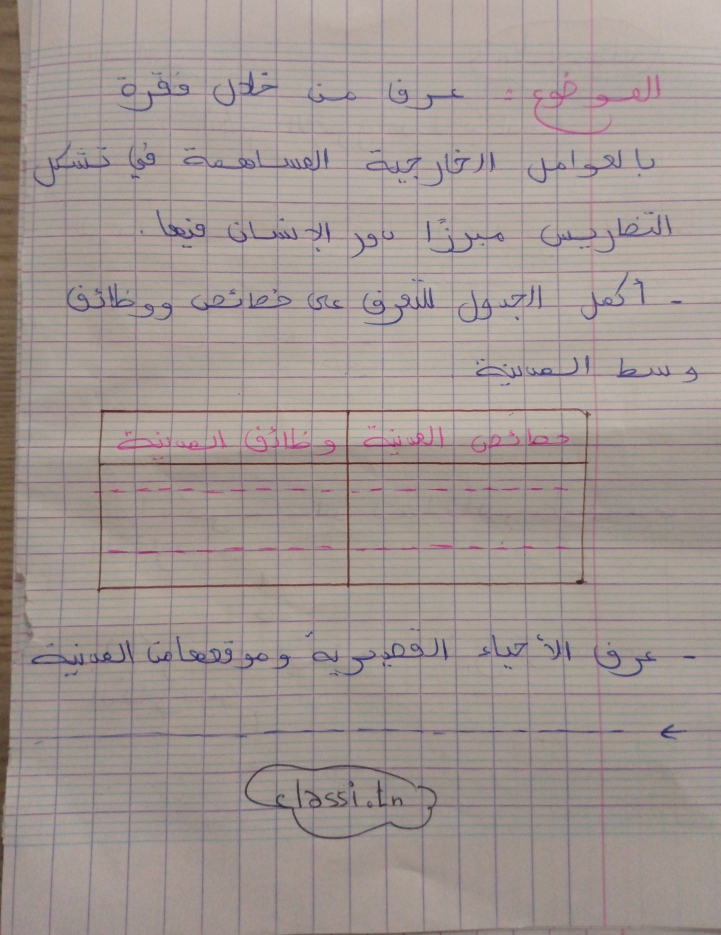 الموضوع : عرف من خلال فقرة
بالعوامل الخارجية المساهمة في تشكل
التضاريس مبرزًا دور الإنسان فيها .
- أكمل الجدول للتعرف على خصائص ووظائف
وسط المدينة
خصائص المدينة وظائف المدينة
- عرف الأحياء القصديرية وموقعها من المدينة
classi.tn